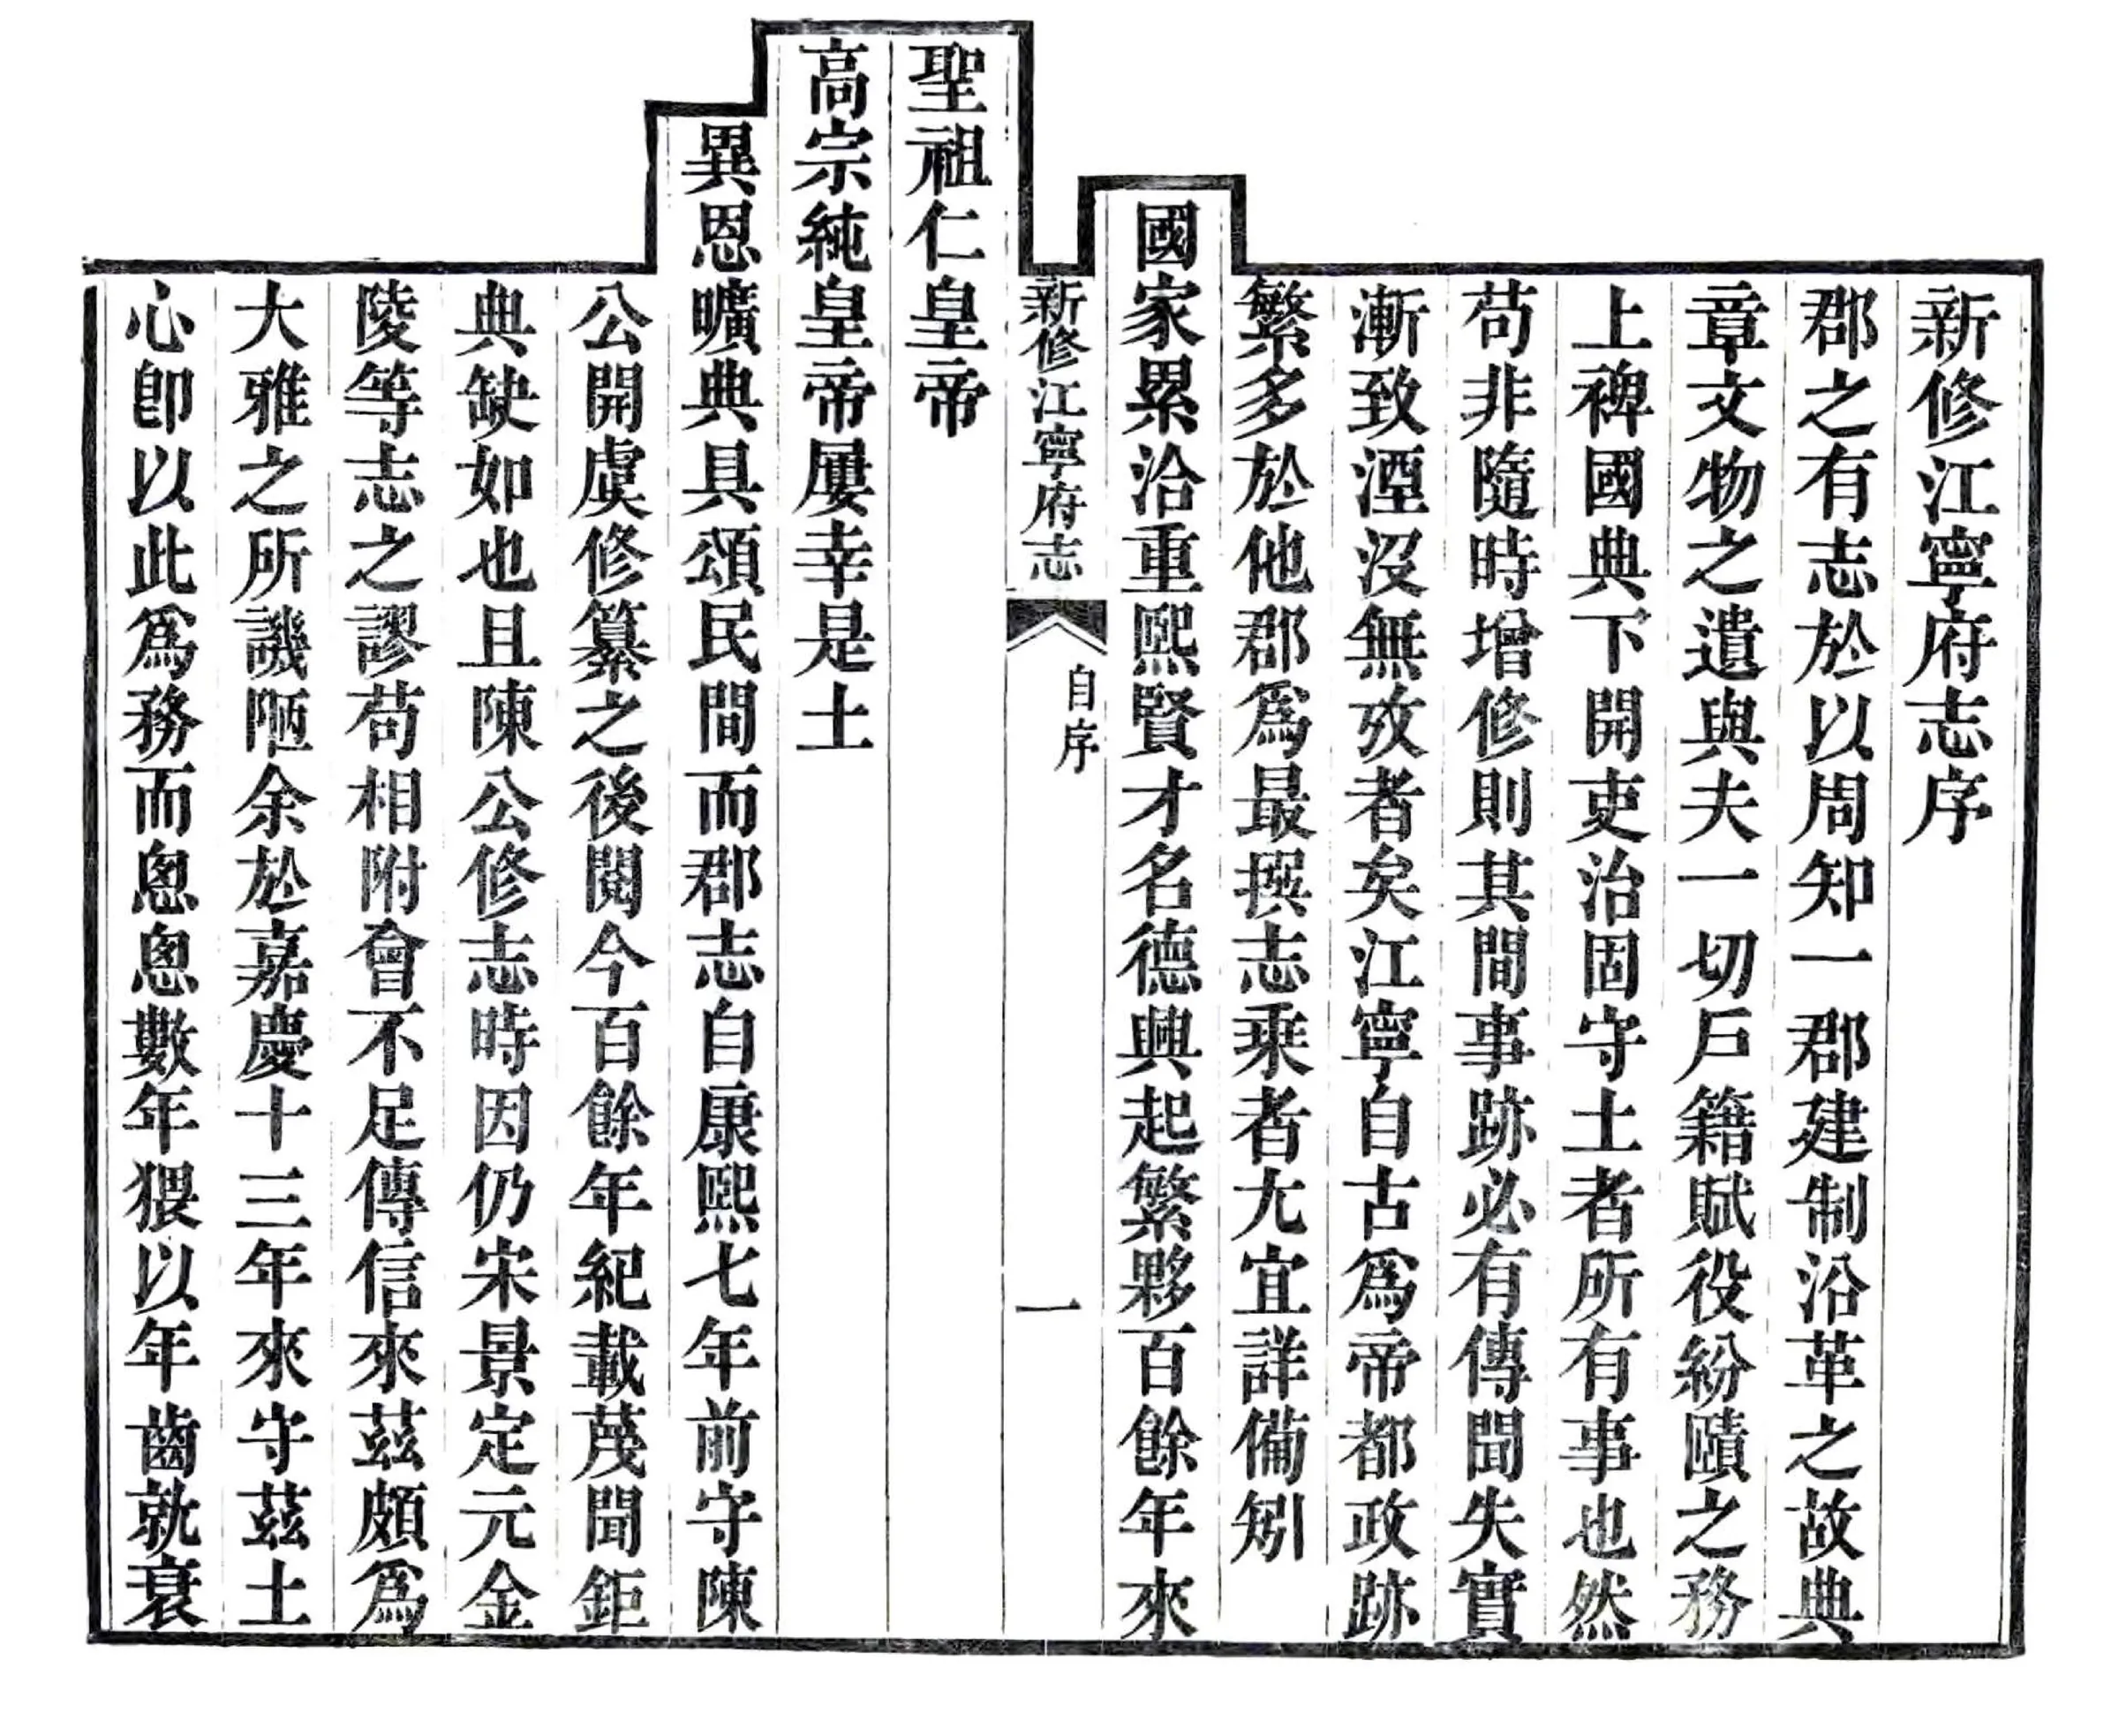 新修江寧府志序
郡之有志於以周知一郡建制沿革之故典
章文物之遺與夫一切戶籍賦役紛賾之務
上裨國典下開吏治固守土者所有事也然
苟非隨時增修則其間事跡必有傳聞失實
漸致湮沒無攷者矣江寧自古爲帝都政跡
繁多於他郡爲最撰志乘者尤宜詳備矧
國家累洽重熙賢才名德興起繁夥百餘年來
新修江寧府志
自序
一
聖祖仁皇帝
高宗純皇帝屢幸是土
異恩曠典具頌民間而郡志自康熙七年前守陳
公開虞修纂之後閱今百餘年紀載蔑聞鉅
典缺如也且陳公修志時因仍宋景定元金
陵等志之謬苟相附會不足傳信來茲頗爲
大雅之所譏陋余於嘉慶十三年來守茲土
心卽以此爲務而悤悤數年猥以年齒就衰